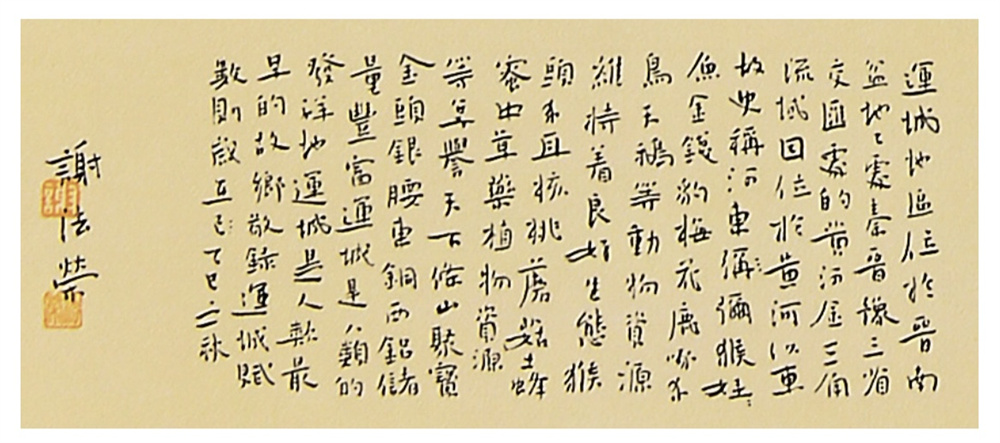 運城地區位於晉南
盆地地處秦晉豫三省
交匯處的黄河金三角
流域因位於黄河以東
故史稱河東獼猴娃
魚金錢豹梅花鹿啄木
鳥天鵝等動物資源
維持着良好生態猴
頭木耳核桃蘑菇土蜂
蜜中草藥植物資源
等享譽天下條山聚寶
金頭銀腰東銅西鋁儲
量豐富運城是人類的
發祥地運城是人類最
早的故鄉敬錄運城賦
數則 乙巳之秋
謝法